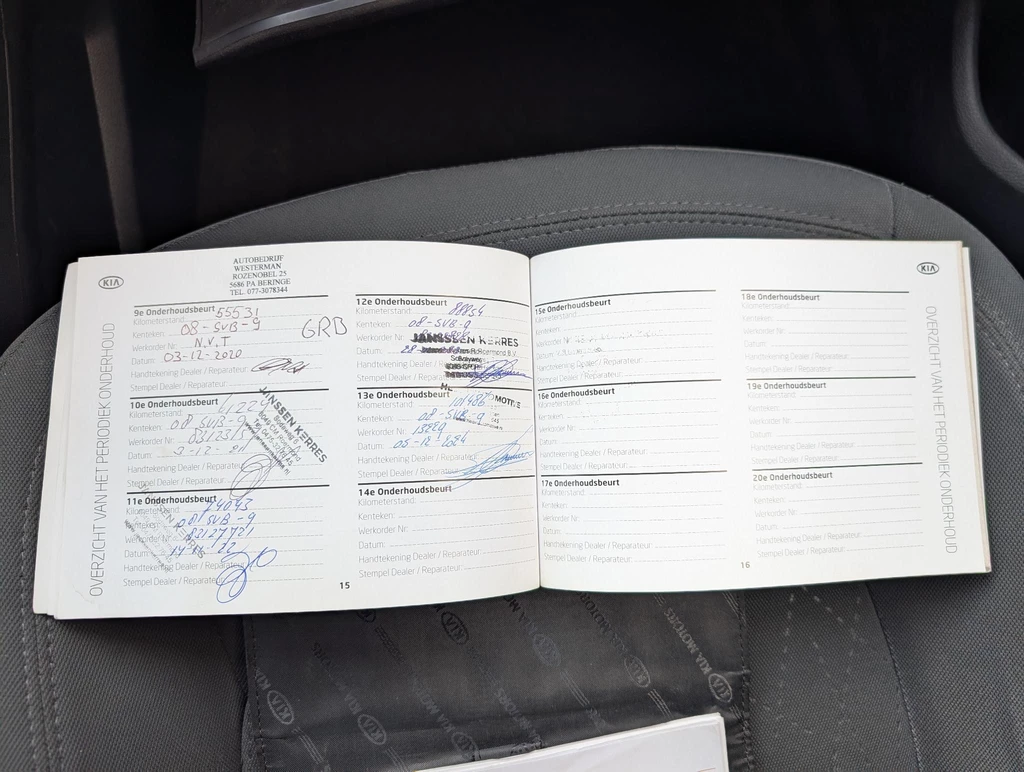 KIA
OVERZICHT VAN HET PERIODIEK ONDERHOUD
AUTOBEDRIJF
WESTERMAN
ROZENOBEL 25
5686 PA BERINGE
TEL. 077-3078344
9e Onderhoudsbeurt
Kilometerstand: 55531
Kenteken: 08-SVB-9
GRB
Werkorder Nr: N.V.T
Datum: 03-12-2020
Handtekening Dealer / Reparateur:
Stempel Dealer / Reparateur:
10e Onderhoudsbeurt
Kilometerstand:
Kenteken: 08 SVB-9
Werkorder Nr:
Datum:
Handtekening Dealer / Reparateur:
Stempel Dealer / Reparateur:
JANSSEN KERRES
11e Onderhoudsbeurt
Kilometerstand: 74043
Kenteken: 08 SVB-9
Werkorder Nr:
Datum:
Handtekening Dealer / Reparateur:
Stempel Dealer / Reparateur:
15
12e Onderhoudsbeurt
Kilometerstand: 88854
Kenteken: 08-SVB-9
Werkorder Nr:
JANSSEN KERRES
Datum: 28
Roermond B.V.
Handtekening Dealer
Stempel Dealer / Reparateur
13e Onderhoudsbeurt
Kilometerstand: 101486
Kenteken: 08-SVB-9
Werkorder Nr: 13229
Datum: 05-12-2024
Handtekening Dealer / Reparateur:
Stempel Dealer / Reparateur:
14e Onderhoudsbeurt
Kilometerstand:
Kenteken:
Werkorder Nr:
Datum:
Handtekening Dealer / Reparateur:
Stempel Dealer / Reparateur:
15e Onderhoudsbeurt
Kilometerstand:
Kenteken:
Werkorder Nr:
Datum:
Handtekening Dealer / Reparateur:
Stempel Dealer / Reparateur:
16e Onderhoudsbeurt
Kilometerstand:
Kenteken:
Werkorder Nr:
Datum:
Handtekening Dealer / Reparateur:
Stempel Dealer / Reparateur:
17e Onderhoudsbeurt
Kilometerstand:
Kenteken:
Werkorder Nr:
Datum:
Handtekening Dealer / Reparateur:
Stempel Dealer / Reparateur:
16
18e Onderhoudsbeurt
Kilometerstand:
Kenteken:
Werkorder Nr:
Datum:
Handtekening Dealer / Reparateur:
Stempel Dealer / Reparateur:
19e Onderhoudsbeurt
Kilometerstand:
Kenteken:
Werkorder Nr:
Datum:
Handtekening Dealer / Reparateur:
Stempel Dealer / Reparateur:
20e Onderhoudsbeurt
Kilometerstand:
Kenteken:
Werkorder Nr:
Datum:
Handtekening Dealer / Reparateur:
Stempel Dealer / Reparateur:
KIA
OVERZICHT VAN HET PERIODIEK ONDERHOUD
KIA MOTORS